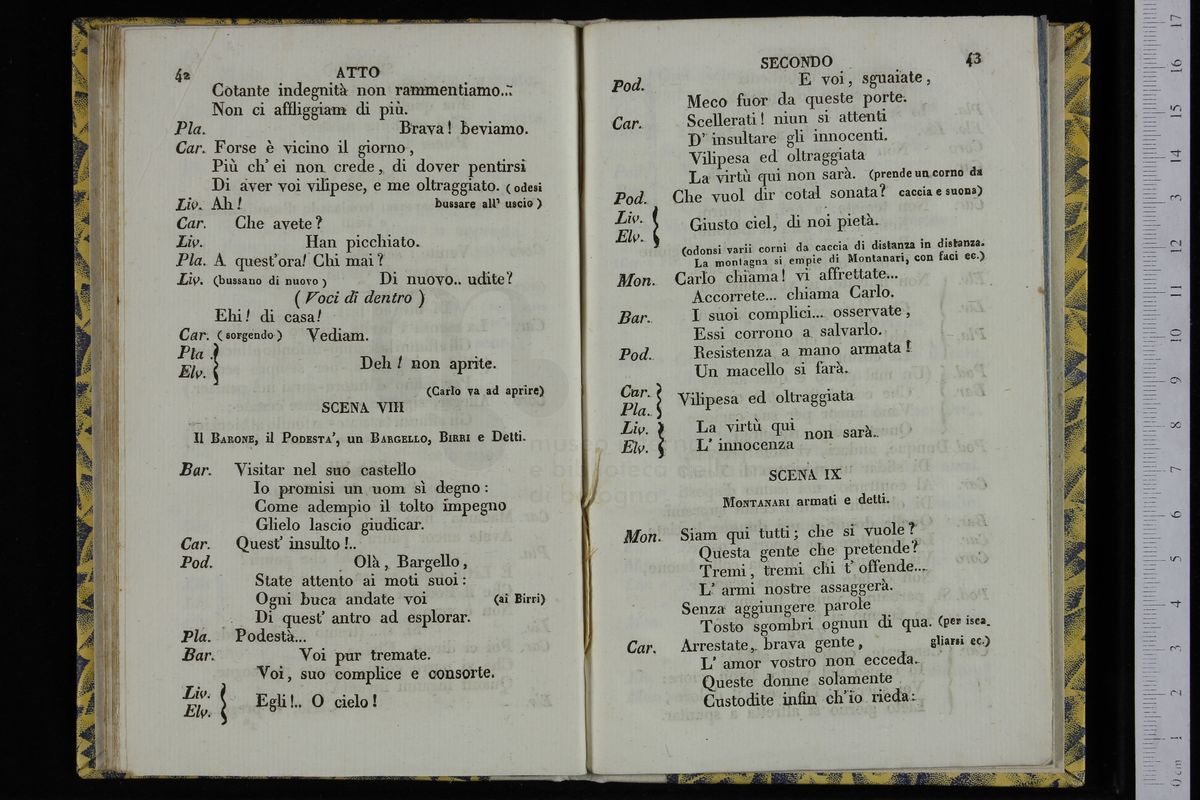 42
ATTO
Cotante indegnità non rammentiamo..
Non ci affliggiam di più.
Pla. Brava! beviamo.
Car. Forse è vicino il giorno,
Più ch' ei non crede, di dover pentirsi
Di aver voi vilipese, e me oltraggiato. (odesi
Liv. Ah! bussare all' uscio)
Car. Che avete?
Liv. Han picchiato.
Pla. A quest'ora! Chi mai?
Liv. (bussano di nuovo) Di nuovo.. udite?
(Voci di dentro)
Ehi! di casa!
Car. (sorgendo) Vediam.
Pla.
Elv. } Deh! non aprite.
(Carlo va ad aprire)
SCENA VIII
Il Barone, il Podesta', un Bargello, Birri e Detti.
Bar. Visitar nel suo castello
Io promisi un uom sì degno:
Come adempio il tolto impegno
Glielo lascio giudicar.
Car. Quest' insulto!..
Pod. Olà, Bargello,
State attento ai moti suoi:
Ogni buca andate voi (ai Birri)
Di quest' antro ad esplorar.
Pla. Podestà...
Bar. Voi pur tremate.
Voi, suo complice e consorte.
Liv.
Elv. } Egli!.. O cielo!
SECONDO
43
Pod. E voi, sguaiate,
Meco fuor da queste porte.
Car. Scellerati! niun si attenti
D' insultare gli innocenti.
Vilipesa ed oltraggiata
La virtù qui non sarà. (prende un corno da
Pod. Che vuol dir cotal sonata? caccia e suona)
Liv.
Elv. } Giusto ciel, di noi pietà.
(odonsi varii corni da caccia di distanza in distanza.
La montagna si empie di Montanari, con faci ec.)
Mon. Carlo chiama! vi affrettate...
Accorrete... chiama Carlo.
Bar. I suoi complici... osservate,
Essi corrono a salvarlo.
Pod. Resistenza a mano armata!
Un macello si farà.
Car.
Pla. } Vilipesa ed oltraggiata
Liv. } La virtù qui non sarà.
Elv. } L' innocenza
SCENA IX
Montanari armati e detti.
Mon. Siam qui tutti; che si vuole?
Questa gente che pretende?
Tremi, tremi chi t' offende...
L' armi nostre assaggerà.
Senza aggiungere parole
Tosto sgombri ognun di qua. (per isca-
Car. Arrestate, brava gente, gliarsi ec.)
L' amor vostro non ecceda.
Queste donne solamente
Custodite infin ch'io rieda: